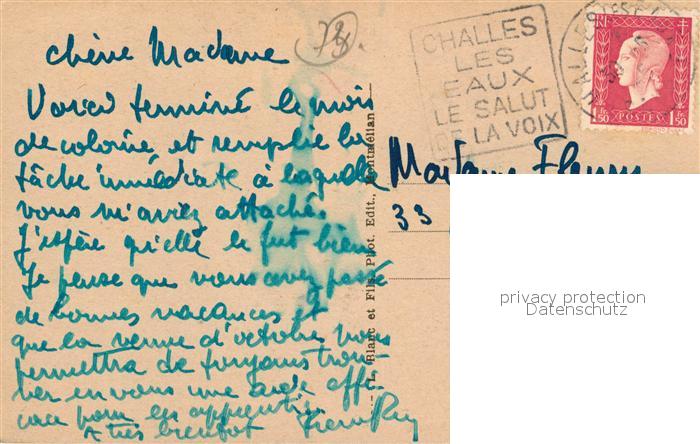 chère Madame
78
Voici terminé le mois
de colonie, et remplie la
tâche immédiate à laquelle
vous m'aviez attaché.
J'espère qu'elle le fut bien
Je pense que vous avez passé
de bonnes vacances et
que la venue d'octobre vous
permettra de toujours trou-
ver en vous une aide effi-
cace pour les apprentis.
A très bientôt
CHALLES
LES
EAUX
LE SALUT
DE LA VOIX
RF
1 Fr. 50
POSTES
1 Fr. 50
Madame
33
L. Blanc et Fils, Phot. Edit., Montmélian
privacy protection
Datenschutz